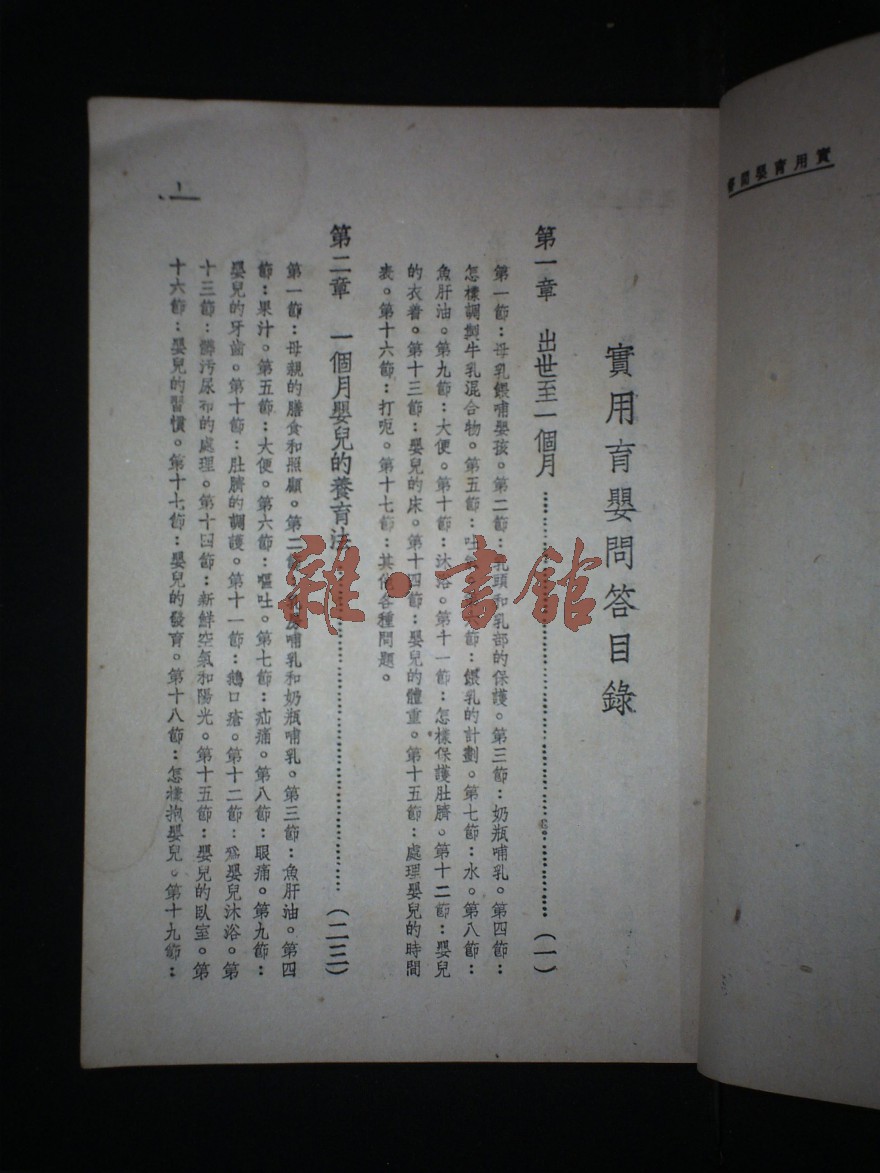 實用育嬰問答
實用育嬰問答目錄
第一章 出世至一個月……(一)
第一節：母乳餵哺嬰孩。第二節：乳頭和乳部的保護。第三節：奶瓶哺乳。第四節：
怎樣調製牛乳混合物。第五節：吐 節：餵乳的計劃。第七節：水。第八節：
魚肝油。第九節：大便。第十節：沐浴。第十一節：怎樣保護肚臍。第十二節：嬰兒
的衣着。第十三節：嬰兒的床。第十四節：嬰兒的體重。第十五節：處理嬰兒的時間
表。第十六節：打呃。第十七節：其他各種問題。
第二章 一個月嬰兒的養育法……(二三)
第一節：母親的膳食和照顧。第二節：乳房哺乳和奶瓶哺乳。第三節：魚肝油。第四
節：果汁。第五節：大便。第六節：嘔吐。第七節：疝痛。第八節：眼痛。第九節：
嬰兒的牙齒。第十節：肚臍的調護。第十一節：鵝口瘡。第十二節：爲嬰兒沐浴。第
十三節：髒污尿布的處理。第十四節：新鮮空氣和陽光。第十五節：嬰兒的臥室。第
十六節：嬰兒的習慣。第十七節：嬰兒的發育。第十八節：怎樣抱嬰兒。第十九節：
1
雜·書館